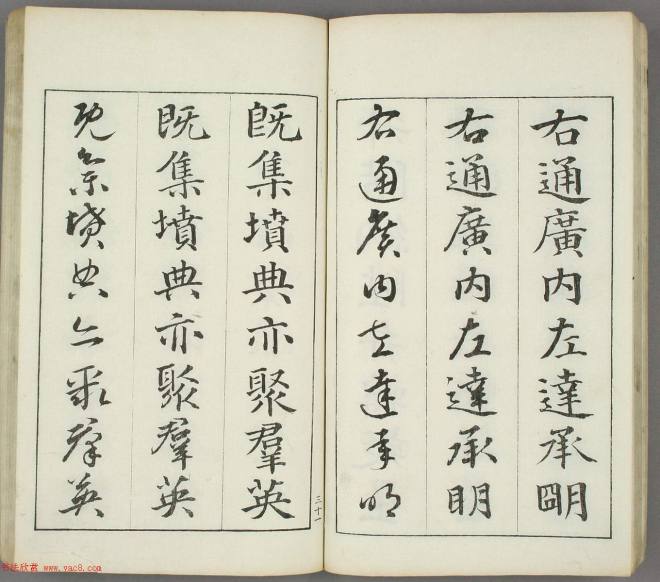 右通廣内左達承朙
右通廣内左達承明
右通廣内左達承明
既集墳典亦聚羣英
既集墳典亦聚羣英
既集墳典亦聚群英
三十一
书法欣赏 www.yac8.com